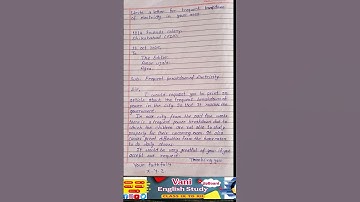 Write a letter for frequent breakdown
of electricity in your area
Shikohabad (205)
15 oct 2022
To
The Editor
Amar ujala
Agra
Sub: Frequent breakdown of electricity.
Sir,
I would request you to print an
article about the frequent breakdown of
power in the city so that it
government.
In our city from the past few weeks
there is a frequent power breakdown due to
which the children are not able to study
properly for their upcoming exam. It also
causes great affliction from the
to do daily chores.
It would be very greatful of you if you
accept our request.
Thanking you
Your faithfully
X.Y.Z
Vani
English Study
CLASS IX TO XII